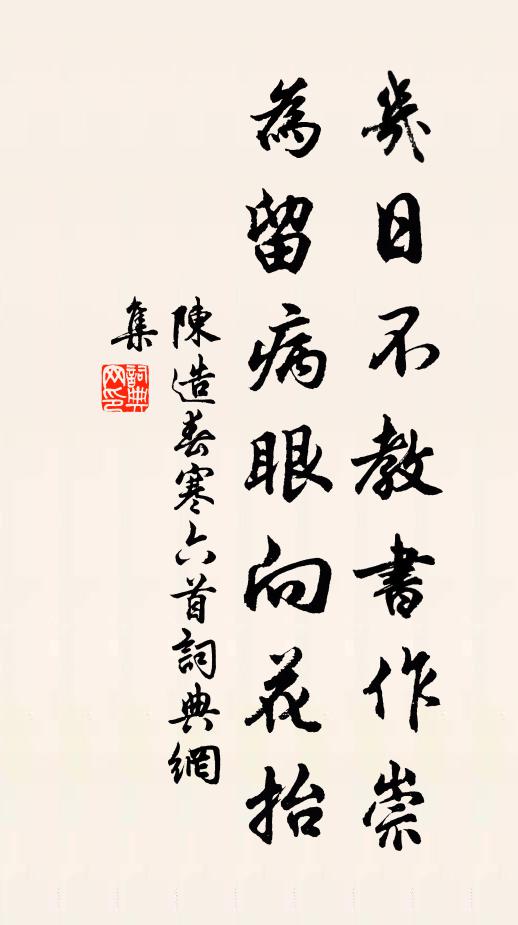 幾日不教書作祟
為留病眼向花抬
陳造春寒六首詞典網
集
詞典网印